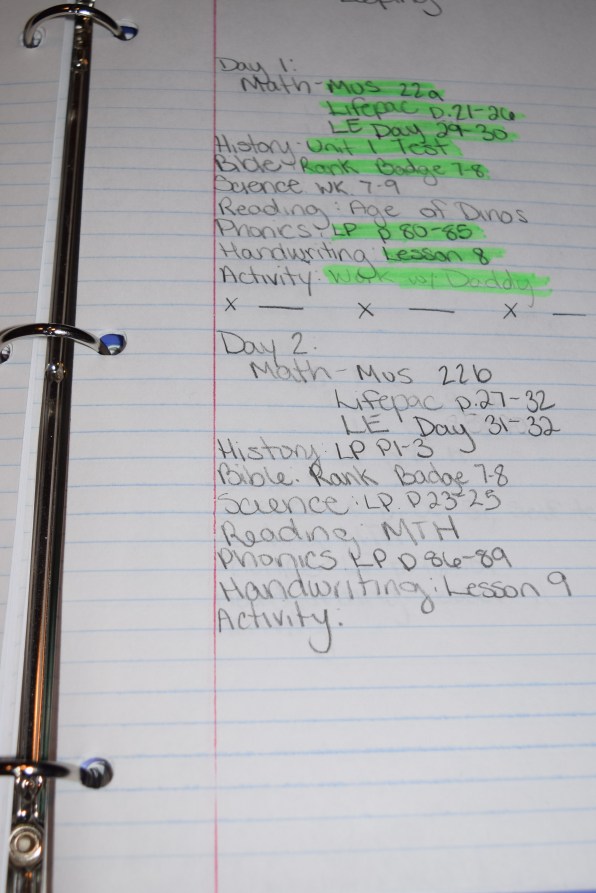 Day 1:
Math - Mus 22a
Lifepac p.21-26
LE Day 29-30
History - Unit 1 Test
Bible - Rank Badge 7-8
Science WK 7-9
Reading: Age of Dinos
Phonics - LP p 80-85
Handwriting: Lesson 8
Activity: Work w/ Daddy
x — x — x —
Day 2:
Math - Mus 22b
Lifepac p.27-32
LE Day 31-32
History: LP P1-3
Bible: Rank Badge 7-8
Science: LP. P23-25
Reading: MTH
Phonics: LP p 86-89
Handwriting: Lesson 9
Activity: